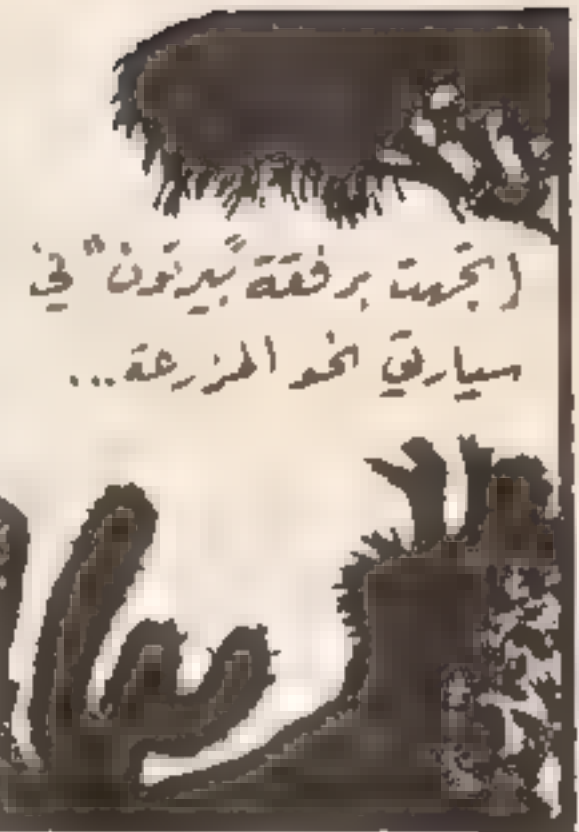 اتجهت برفقة "بيرتون" في
سيارتي نحو المزرعة...